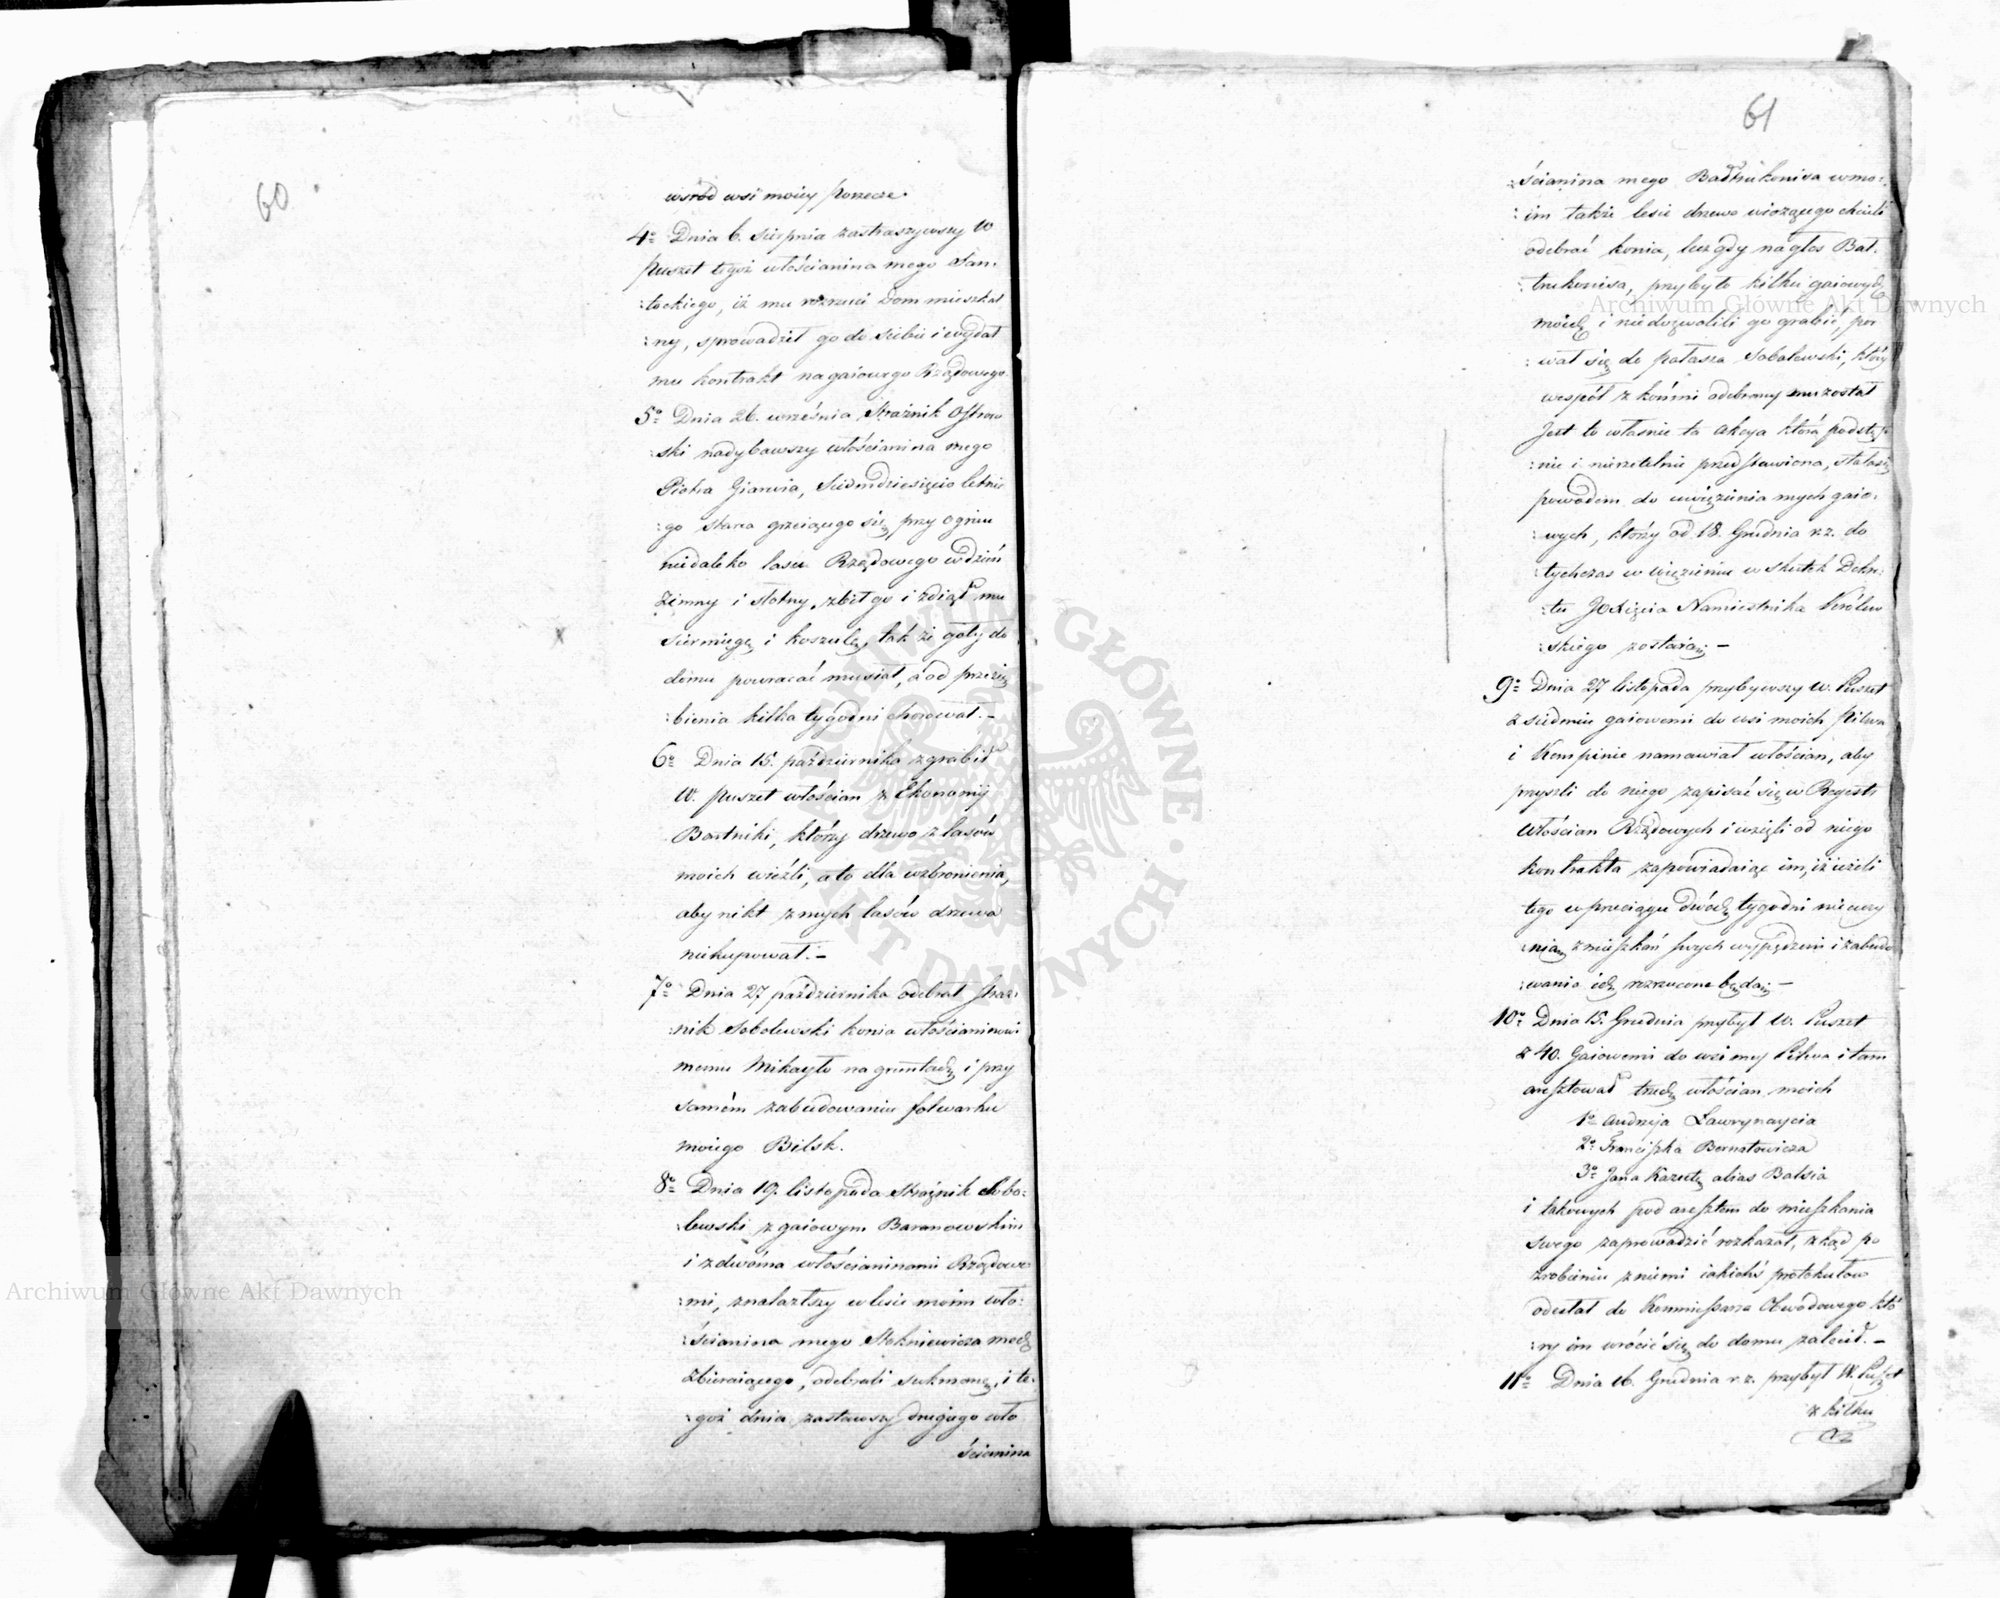 60
wsród wsi moiey Porzecze.
4o Dnia 6. Sierpnia zastraszywszy W
Puszet tegoż włościanina mego San:
:tockiego, iż mu rozrzuci Dom mieszkal
:ny, sprowadził go do siebie i wydał
mu kontrakt na gaiowego Rządowego
5o Dnia 26. września Strażnik Ostrow
:ski nadybawszy włościanina mego
Piotra Giarwia, Siedmdziesięcio letnie
:go starca grzeiącego się przy ogniu
niedaleko lasu Rządowego w dzień
zimny i słotny, zbił go i zdiął mu
siermięgę i koszulę, tak że goły do
domu powracać musiał, a od przezię
:bienia kilka tygodni chorował. –
6o Dnia 15. października zgrabił
W. Puszet włościan z Ekonomij
Bartniki, którzy drzewo z lasów
moich wieźli, a to dla wzbronienia,
aby nikt z mych lasów drzewa
niekupował. –
7o Dnia 27 października odebrał straż:
:nik Sobolewski konia włościaninowi
memu Mikayło na gruntach i przy
samém zabudowaniu folwarku
moiego Bilsk.
8o Dnia 19. listopada Strażnik Sobo:
:lewski z gaiowym Baranowskim
i z dwóma włościaninami Rządowe
:mi, znalazłszy w lesie moim wło:
:ścianina mego Stokniewicza mech
zbieraiącego, odebrali sukmanę, i te:
:goż dnia zastawszy drugiego wło
ścianina
61
:ścianina mego Bałtrukonisa w mo:
:im także lesie drzewo wiozącego chcieli
odebrać konia, lecz gdy na głos Bał:
:trukonisa, przybyło kilku gaiowych
moich i niedozwolili go grabić, por
:wał się do pałasza Sobolewski, który
wespół z końmi odebrany mu został
Jest to właśnie ta akcya która podstęp
:nie i nierzetelnie przedstawiona, stała się
powodem do uwięzienia mych gaio:
:wych, którzy od 18. Grudnia r.z. do
tychczas w więzieniu w skutek Dekre:
:tu JOXięcia Namiestnika Królew
:skiego zostaią –
9o Dnia 27 listopada przybywszy W. Puszet
z siedmiu gaiowemi do wsi moich Pilwa
i Kempinie namawiał włościan, aby
przyszli do niego zapisać się w Regestr
włościan Rządowych i wzięli od niego
kontrakta zapowiadaiąc im, iż ieżeli
tego w przeciągu dwóch tygodni nieuczy
:nią, z mieszkań swych wypędzeni i zabudo
:wania ich rozrzucone będą –
10o Dnia 15. Grudnia przybył W. Puszet
z 40. Gaiowemi do wsi mey Pilwa i tam
aresztował trzech włościan moich
1o Andrzeja Ławrynaycia
2o Franciszka Bernatowicza
3o Jana Kazutę alias Balsia
i takowych pod aresztem do mieszkania
swego zaprowadzić rozkazał, zkąd po
zrobieniu z niemi iakichś protokułów
odesłał do Kommissarza Obwodowego któ
:ry im wrócić się do domu zalecił. –
11o Dnia 16. Grudnia r.z. przybył W. Puszet
z kilku
Archiwum Główne Akt Dawnych
Archiwum Główne Akt Dawnych
ARCHIWUM GŁÓWNE AKT DAWNYCH